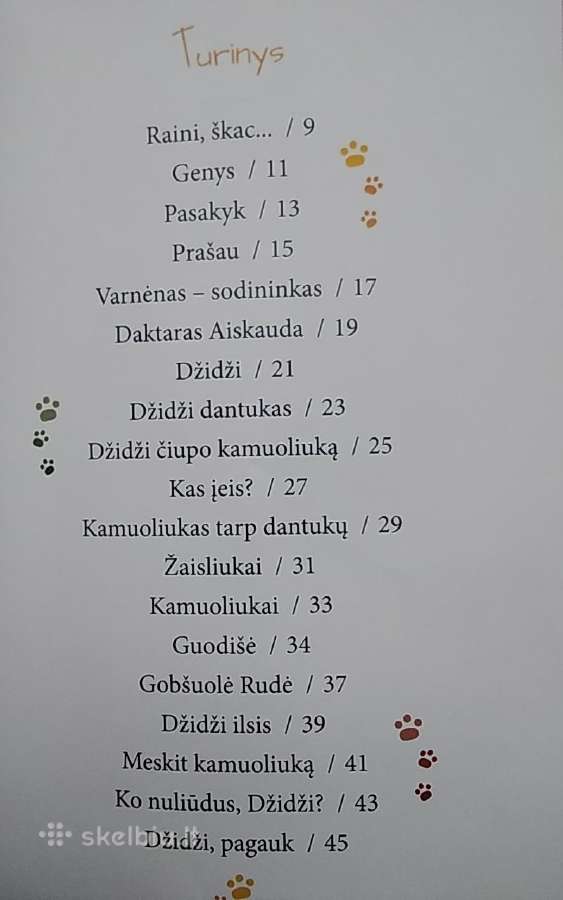 Turinys
Raini, škac... / 9
Genys / 11
Pasakyk / 13
Prašau / 15
Varnėnas – sodininkas / 17
Daktaras Aiskauda / 19
Džidži / 21
Džidži dantukas / 23
Džidži čiupo kamuoliuką / 25
Kas įeis? / 27
Kamuoliukas tarp dantukų / 29
Žaisliukai / 31
Kamuoliukai / 33
Guodišė / 34
Gobšuolė Rudė / 37
Džidži ilsis / 39
Meskit kamuoliuką / 41
Ko nuliūdus, Džidži? / 43
Džidži, pagauk / 45
skelbiu.lt